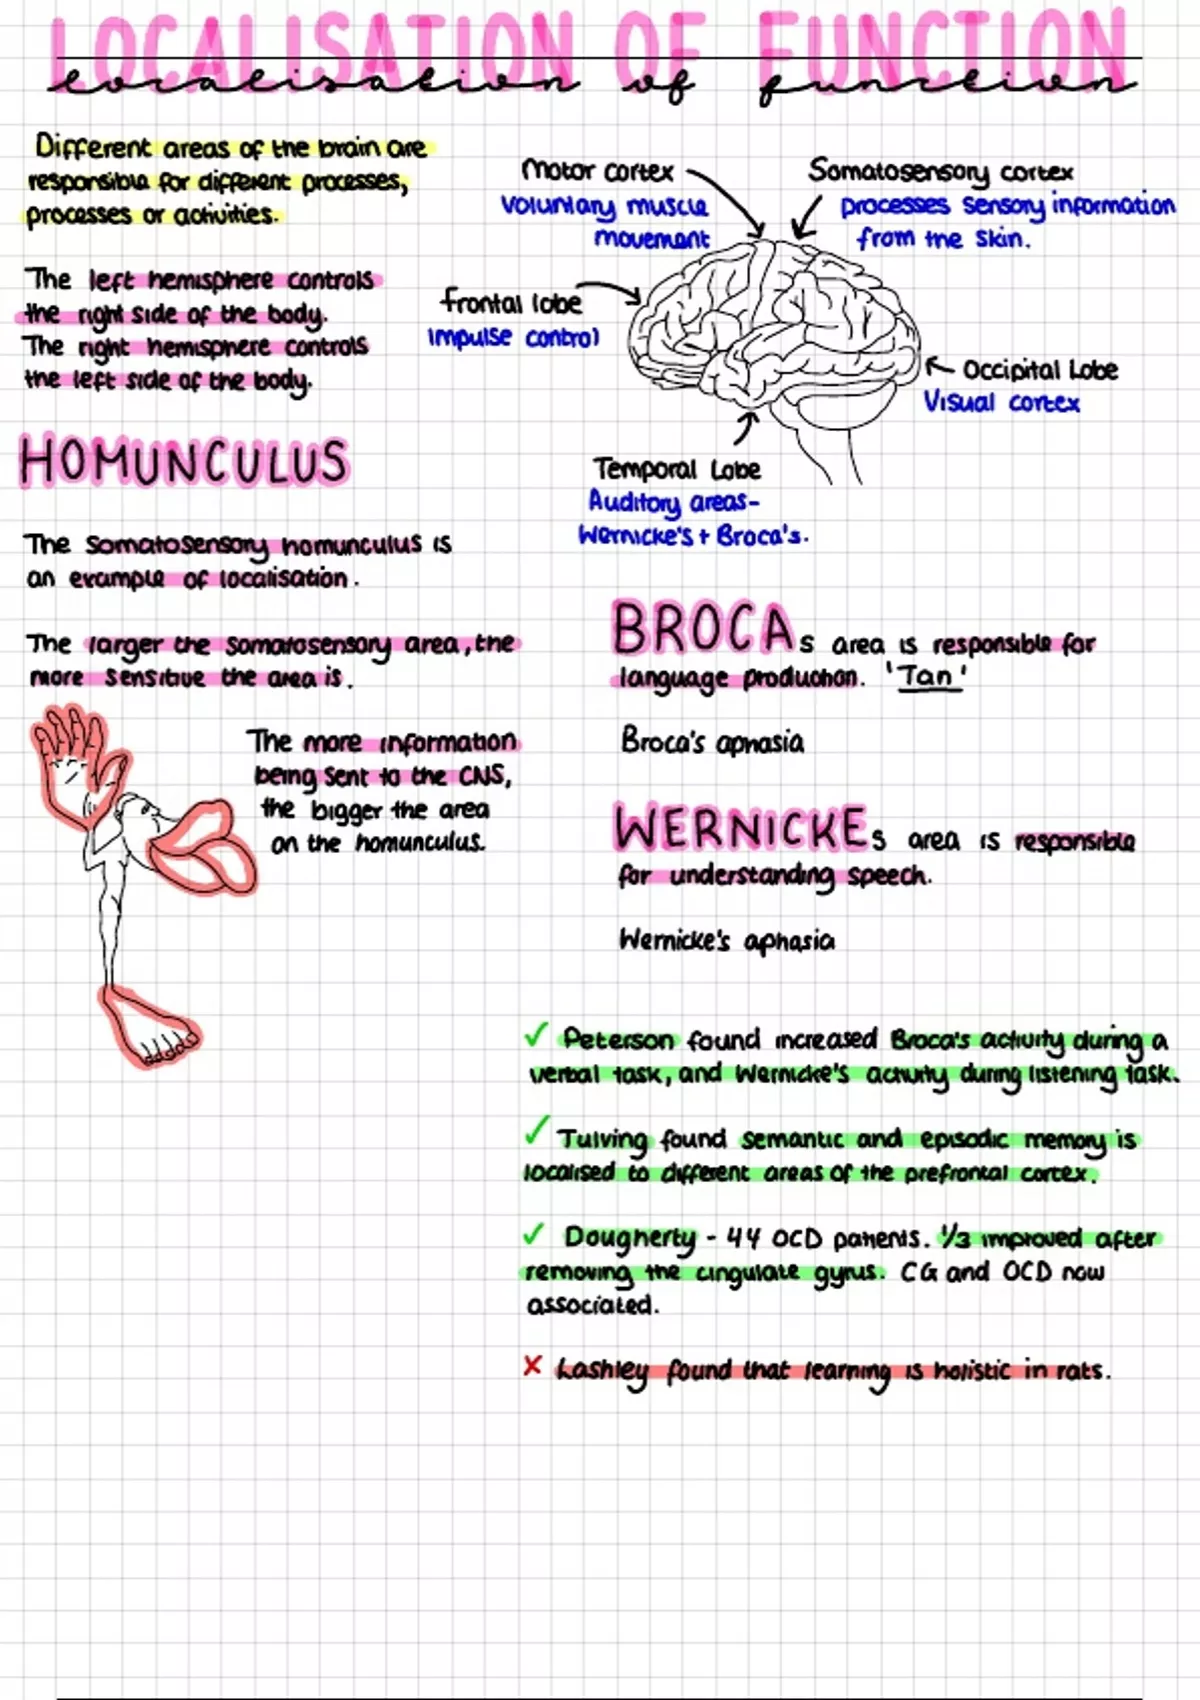 LOCALISATION OF FUNCTION
localisation of function
Different areas of the brain are
responsible for different processes,
processes or activities.
The left hemisphere controls
the right side of the body.
The right hemisphere controls
the left side of the body.
Motor cortex
Voluntary muscle
movement
Somatosensory cortex
processes sensory information
from the skin.
frontal lobe
impulse control
Occipital Lobe
Visual cortex
Temporal Lobe
Auditory areas-
Wernicke's + Broca's.
HOMUNCULUS
The somatosensory homunculus is
an example of localisation.
The larger the somatosensory area, the
more sensitive the area is.
The more information
being sent to the CNS,
the bigger the area
on the homunculus.
BROCAs area is responsible for
language production. 'Tan'
Broca's aphasia
WERNICKEs area is responsible
for understanding speech.
Wernicke's aphasia
✓ Peterson found increased Broca's activity during a
verbal task, and Wernicke's activity during listening task.
✓ Tulving found semantic and episodic memory is
localised to different areas of the prefrontal cortex.
✓ Dougherty - 44 OCD patients. 1/3 improved after
removing the cingulate gyrus. CG and OCD now
associated.
✗ Lashley found that learning is holistic in rats.